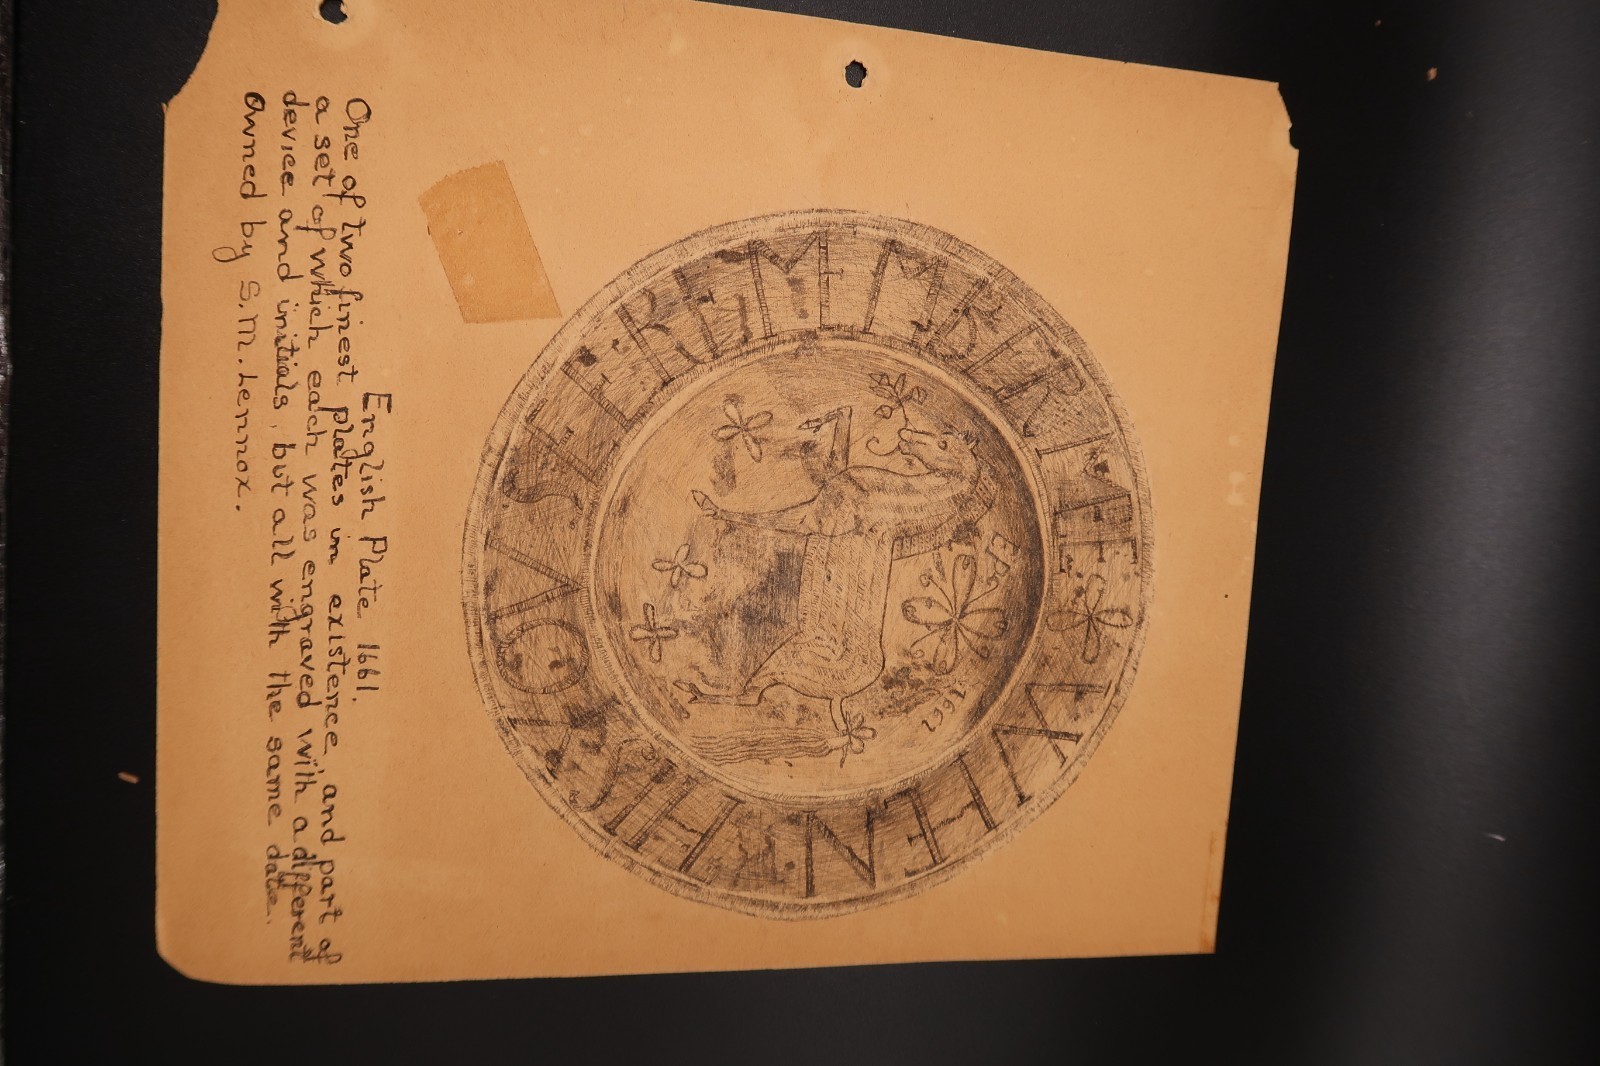 WHEN THIS YOV SEE REMEMBER ME
EP
1662
English Plate 1661.
One of two finest plates in existence, and part of
a set of which each was engraved with a different
device and initials, but all with the same date.
Owned by S.M. Lennox.